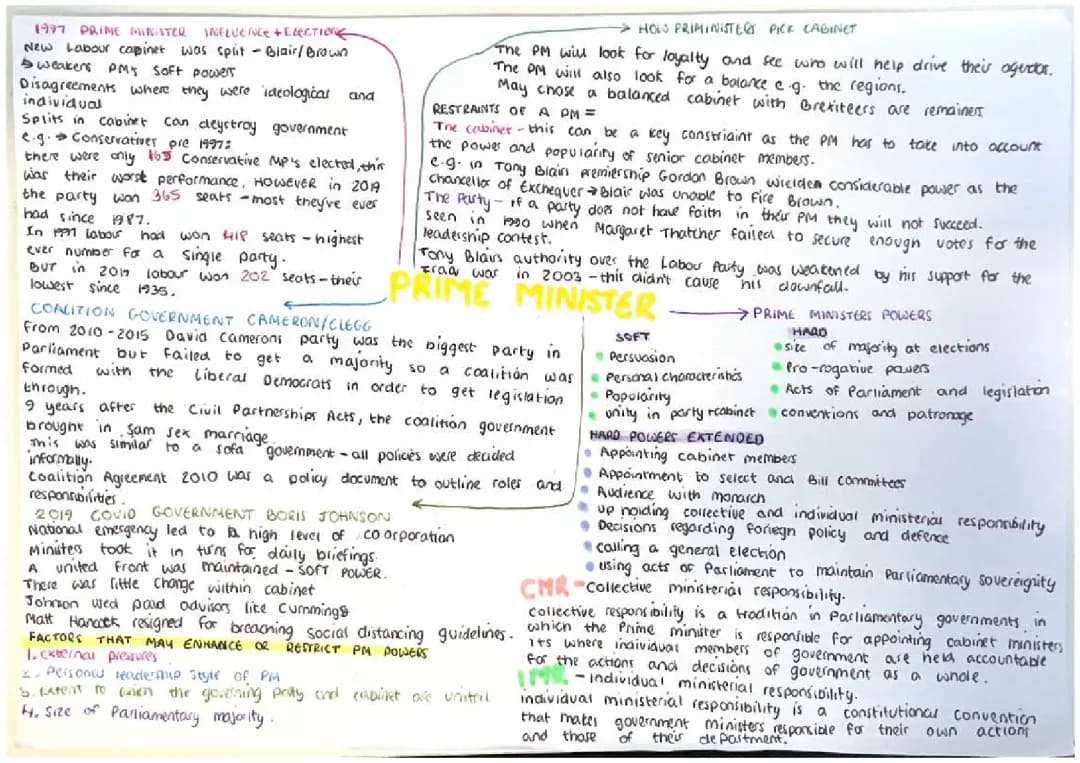 1997 PRIME MINISTER INFLUENCE + ELECTION
New Labour cabinet was split - Blair/Brown
→ weakens PM's soft powers
Disagreements where they were ideological and
individual
Splits in cabinet can deystroy government
e.g. → Conservatives pre 1997:
there were only 165 Conservative MP's elected, this
was their worst performance, HOWEVER in 2019
the party won 365 seats - most they've ever
had since 1987.
In 1997 labour had won 418 seats - highest
ever number for a single party.
BUT in 2019 labour won 202 seats - their
lowest since 1935.
COALITION GOVERNMENT CAMERON/CLEGG
From 2010-2015 David Camerons party was the biggest party in
Parliament but failed to get a majority so a coalition was
formed with the Liberal Democrats in order to get legislation
through.
9 years after the Civil Partnerships Acts, the coalition government
brought in sam sex marriage
This was similar to a sofa government - all policies were decided
informally.
Coalition Agreement 2010 was a policy document to outline roles and
responsibilities.
2019 COVID GOVERNMENT BORIS JOHNSON
National emergency led to a high level of coorporation
Ministers took it in turns for daily briefings.
A united front was maintained - SOFT POWER.
There was little change within cabinet
Johnson used paid advisors like Cummings
Matt Hancock resigned for breaching social distancing guidelines.
FACTORS THAT MAY ENHANCE OR RESTRICT PM POWERS
1. External pressures
2. Personal leadership style of PM
3. Extent to wich the governing party and cabinet are united
4. Size of Parliamentary majority.
PRIME MINISTER
HOW PRIMINISTERS PICK CABINET
The PM will look for loyalty and see who will help drive their agendar.
The PM will also look for a balance e.g. the regions.
May chose a balanced cabinet with Brexiteers are remainers
RESTRAINTS OF A PM =
The cabinet - this can be a key constraint as the PM has to take into account
the power and popularity of senior cabinet members.
e.g. in Tony Blairs premiership Gordon Brown wielded considerable power as the
chancellor of Exchequer → Blair was unable to fire Brown.
The Party - if a party does not have faith in their PM they will not succeed.
seen in 1990 when Margaret Thatcher failed to secure enough votes for the
leadership contest.
Tony Blairs authority over the Labour Party was weakened by his support for the
Iraq war in 2003 - this didn't cause his downfall.
PRIME MINISTERS POWERS
SOFT
Persuasion
Personal characteristics
Popularity
unity in party + cabinet
HARD
size of majority at elections
Pro-rogative powers
Acts of Parliament and legislation
conventions and patronage
HARD POWERS EXTENDED
Appointing cabinet members
Appointment to select and Bill committees
Audience with monarch
up holding collective and individual ministerial responsibility
Decisions regarding foriegn policy and defence
calling a general election
using acts of Parliament to maintain Parliamentary sovereignity
CMR - Collective ministerial responsibility.
collective responsibility is a tradition in Parliamentary governments in
which the Prime minister is responsible for appointing cabinet ministers
Its where individual members of government are held accountable
for the actions and decisions of government as a whole.
IMR - Individual ministerial responsibility.
individual ministerial responsibility is a constitutional convention
that makes government ministers responsible for their own actions
and those of their department.